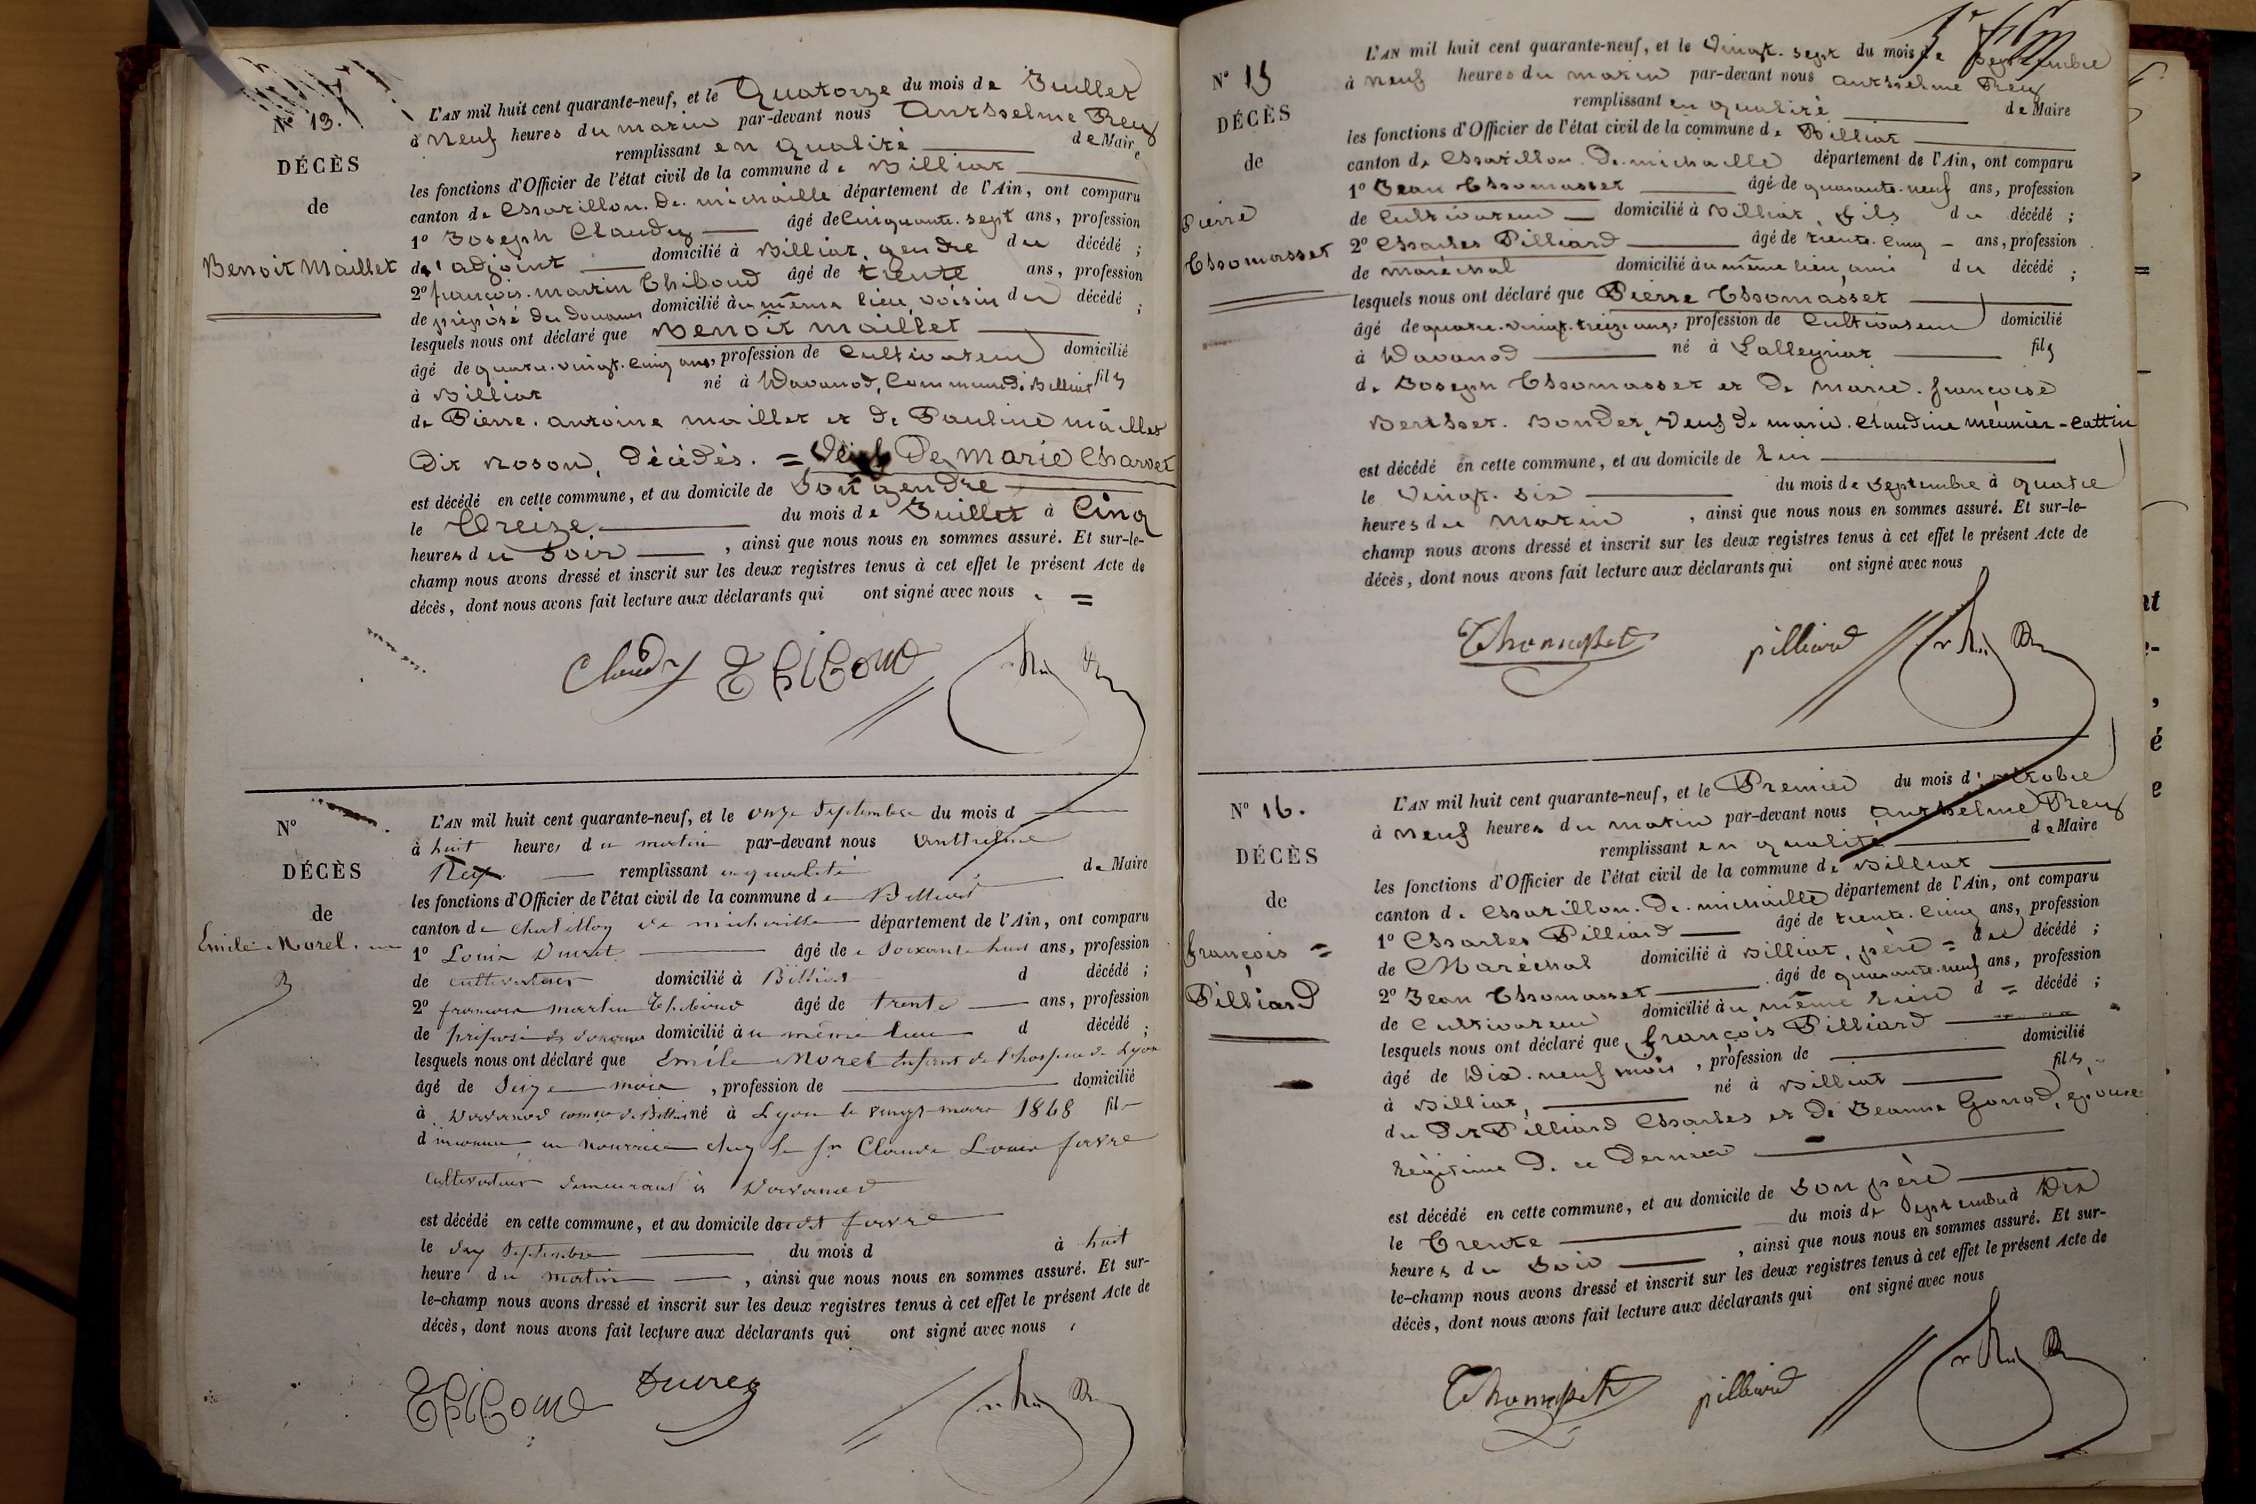 N° 13.
DÉCÈS
de
Benoit Maillet
L'AN mil huit cent quarante-neuf, et le Quatorze du mois de Juillet
à neuf heures du matin par-devant nous Anthelme Rey
remplissant en qualité de Maire
les fonctions d'Officier de l'état civil de la commune de Billiat
canton de Chatillon. de. michaille département de l'Ain, ont comparu
1° Joseph Claudy âgé de Cinquante. sept ans, profession
de l'adjoint domicilié à Billiat, gendre du décédé ;
2° françois. martin Thiboud âgé de trente ans, profession
de préposé des douanes domicilié au même lieu, voisin du décédé ;
lesquels nous ont déclaré que Benoit Maillet
âgé de quatre. vingt. cinq ans, profession de Cultivateur domicilié
à Billiat né à Davanod, Commune de Billiat fils
de Pierre. antoine maillet et de Pauline mailles
dit noson, décédés. = Veuf De marie Charvet
est décédé en cette commune, et au domicile de Son gendre
le Treize du mois de Juillet à Cinq
heures du Soir , ainsi que nous nous en sommes assuré. Et sur-le-
champ nous avons dressé et inscrit sur les deux registres tenus à cet effet le présent Acte de
décès, dont nous avons fait lecture aux déclarants qui ont signé avec nous . =
Claudy Thiboud
N°
DÉCÈS
de
Emile Morel.
L'AN mil huit cent quarante-neuf, et le onze Septembre du mois d
à huit heures du matin par-devant nous Anthelme
Rey remplissant en qualité de Maire
les fonctions d'Officier de l'état civil de la commune de Billiat
canton de Chatillon de michaille département de l'Ain, ont comparu
1° Louis Ducret âgé de Soixante huit ans, profession
de cultivateur domicilié à Billiat d décédé ;
2° francois martin Thiboud âgé de trente ans, profession
de préposé des douanes domicilié au même lieu d décédé ;
lesquels nous ont déclaré que Emile Morel Enfant de l'hospice de Lyon
âgé de Seize mois , profession de domicilié
à Davanod commune de Billiat né à Lyon le vingt mars 1848 fil
d'inconnu, en nourrice chez le sr Claude Louis favre
Cultivateur demeurant à Davanod
est décédé en cette commune, et au domicile dudit favre
le dix Septembre du mois d à huit
heure du matin , ainsi que nous nous en sommes assuré. Et sur-
le-champ nous avons dressé et inscrit sur les deux registres tenus à cet effet le présent Acte de
décès, dont nous avons fait lecture aux déclarants qui ont signé avec nous
Thiboud Ducret
N° 15
DÉCÈS
de
Pierre
Thomasset
L'AN mil huit cent quarante-neuf, et le Vingt. sept du mois de Septembre
à neuf heures du matin par-devant nous anthelme Rey
remplissant en qualité de Maire
les fonctions d'Officier de l'état civil de la commune de Billiat
canton de Chatillon. De. michaille département de l'Ain, ont comparu
1° Jean Thomasset âgé de quarante. neuf ans, profession
de Cultivateur domicilié à Billiat, fils du décédé ;
2° Charles Pilliard âgé de trente. cinq ans, profession
de maréchal domicilié au même lieu, ami du décédé ;
lesquels nous ont déclaré que Pierre Thomasset
âgé de quatre. vingt. treize ans, profession de Cultivateur domicilié
à Davanod né à Lalleyriat fils
de Joseph Thomasset et de marie. françoise
Berthet. Bondet, Veuf de marie. Claudine meunier-cattin
est décédé en cette commune, et au domicile de Lui
le Vingt. Six du mois de Septembre à quatre
heures du matin , ainsi que nous nous en sommes assuré. Et sur-le-
champ nous avons dressé et inscrit sur les deux registres tenus à cet effet le présent Acte de
décès, dont nous avons fait lecture aux déclarants qui ont signé avec nous
Thomasset pilliard
N° 16.
DÉCÈS
de
françois =
Pilliard
L'AN mil huit cent quarante-neuf, et le Premier du mois d'octobre
à neuf heures du matin par-devant nous anthelme Rey
remplissant en qualité de Maire
les fonctions d'Officier de l'état civil de la commune de Billiat
canton de Chatillon. De. michaille département de l'Ain, ont comparu
1° Charles Pilliard âgé de trente. cinq ans, profession
de Maréchal domicilié à Billiat, père = du décédé ;
2° Jean Thomasset âgé de quarante. neuf ans, profession
de Cultivateur domicilié au même Lieu d = décédé ;
lesquels nous ont déclaré que françois Pilliard
âgé de Dix. neuf mois , profession de domicilié
à Billiat, né à Billiat fils
du Dit Pilliard Charles et de Jeanne Gonod, epouse
Légitime de ce Dernier
est décédé en cette commune, et au domicile de Son père
le Trente du mois de Septembre à Dix
heures du Soir , ainsi que nous nous en sommes assuré. Et sur-
le-champ nous avons dressé et inscrit sur les deux registres tenus à cet effet le présent Acte de
décès, dont nous avons fait lecture aux déclarants qui ont signé avec nous
Thomasset pilliard